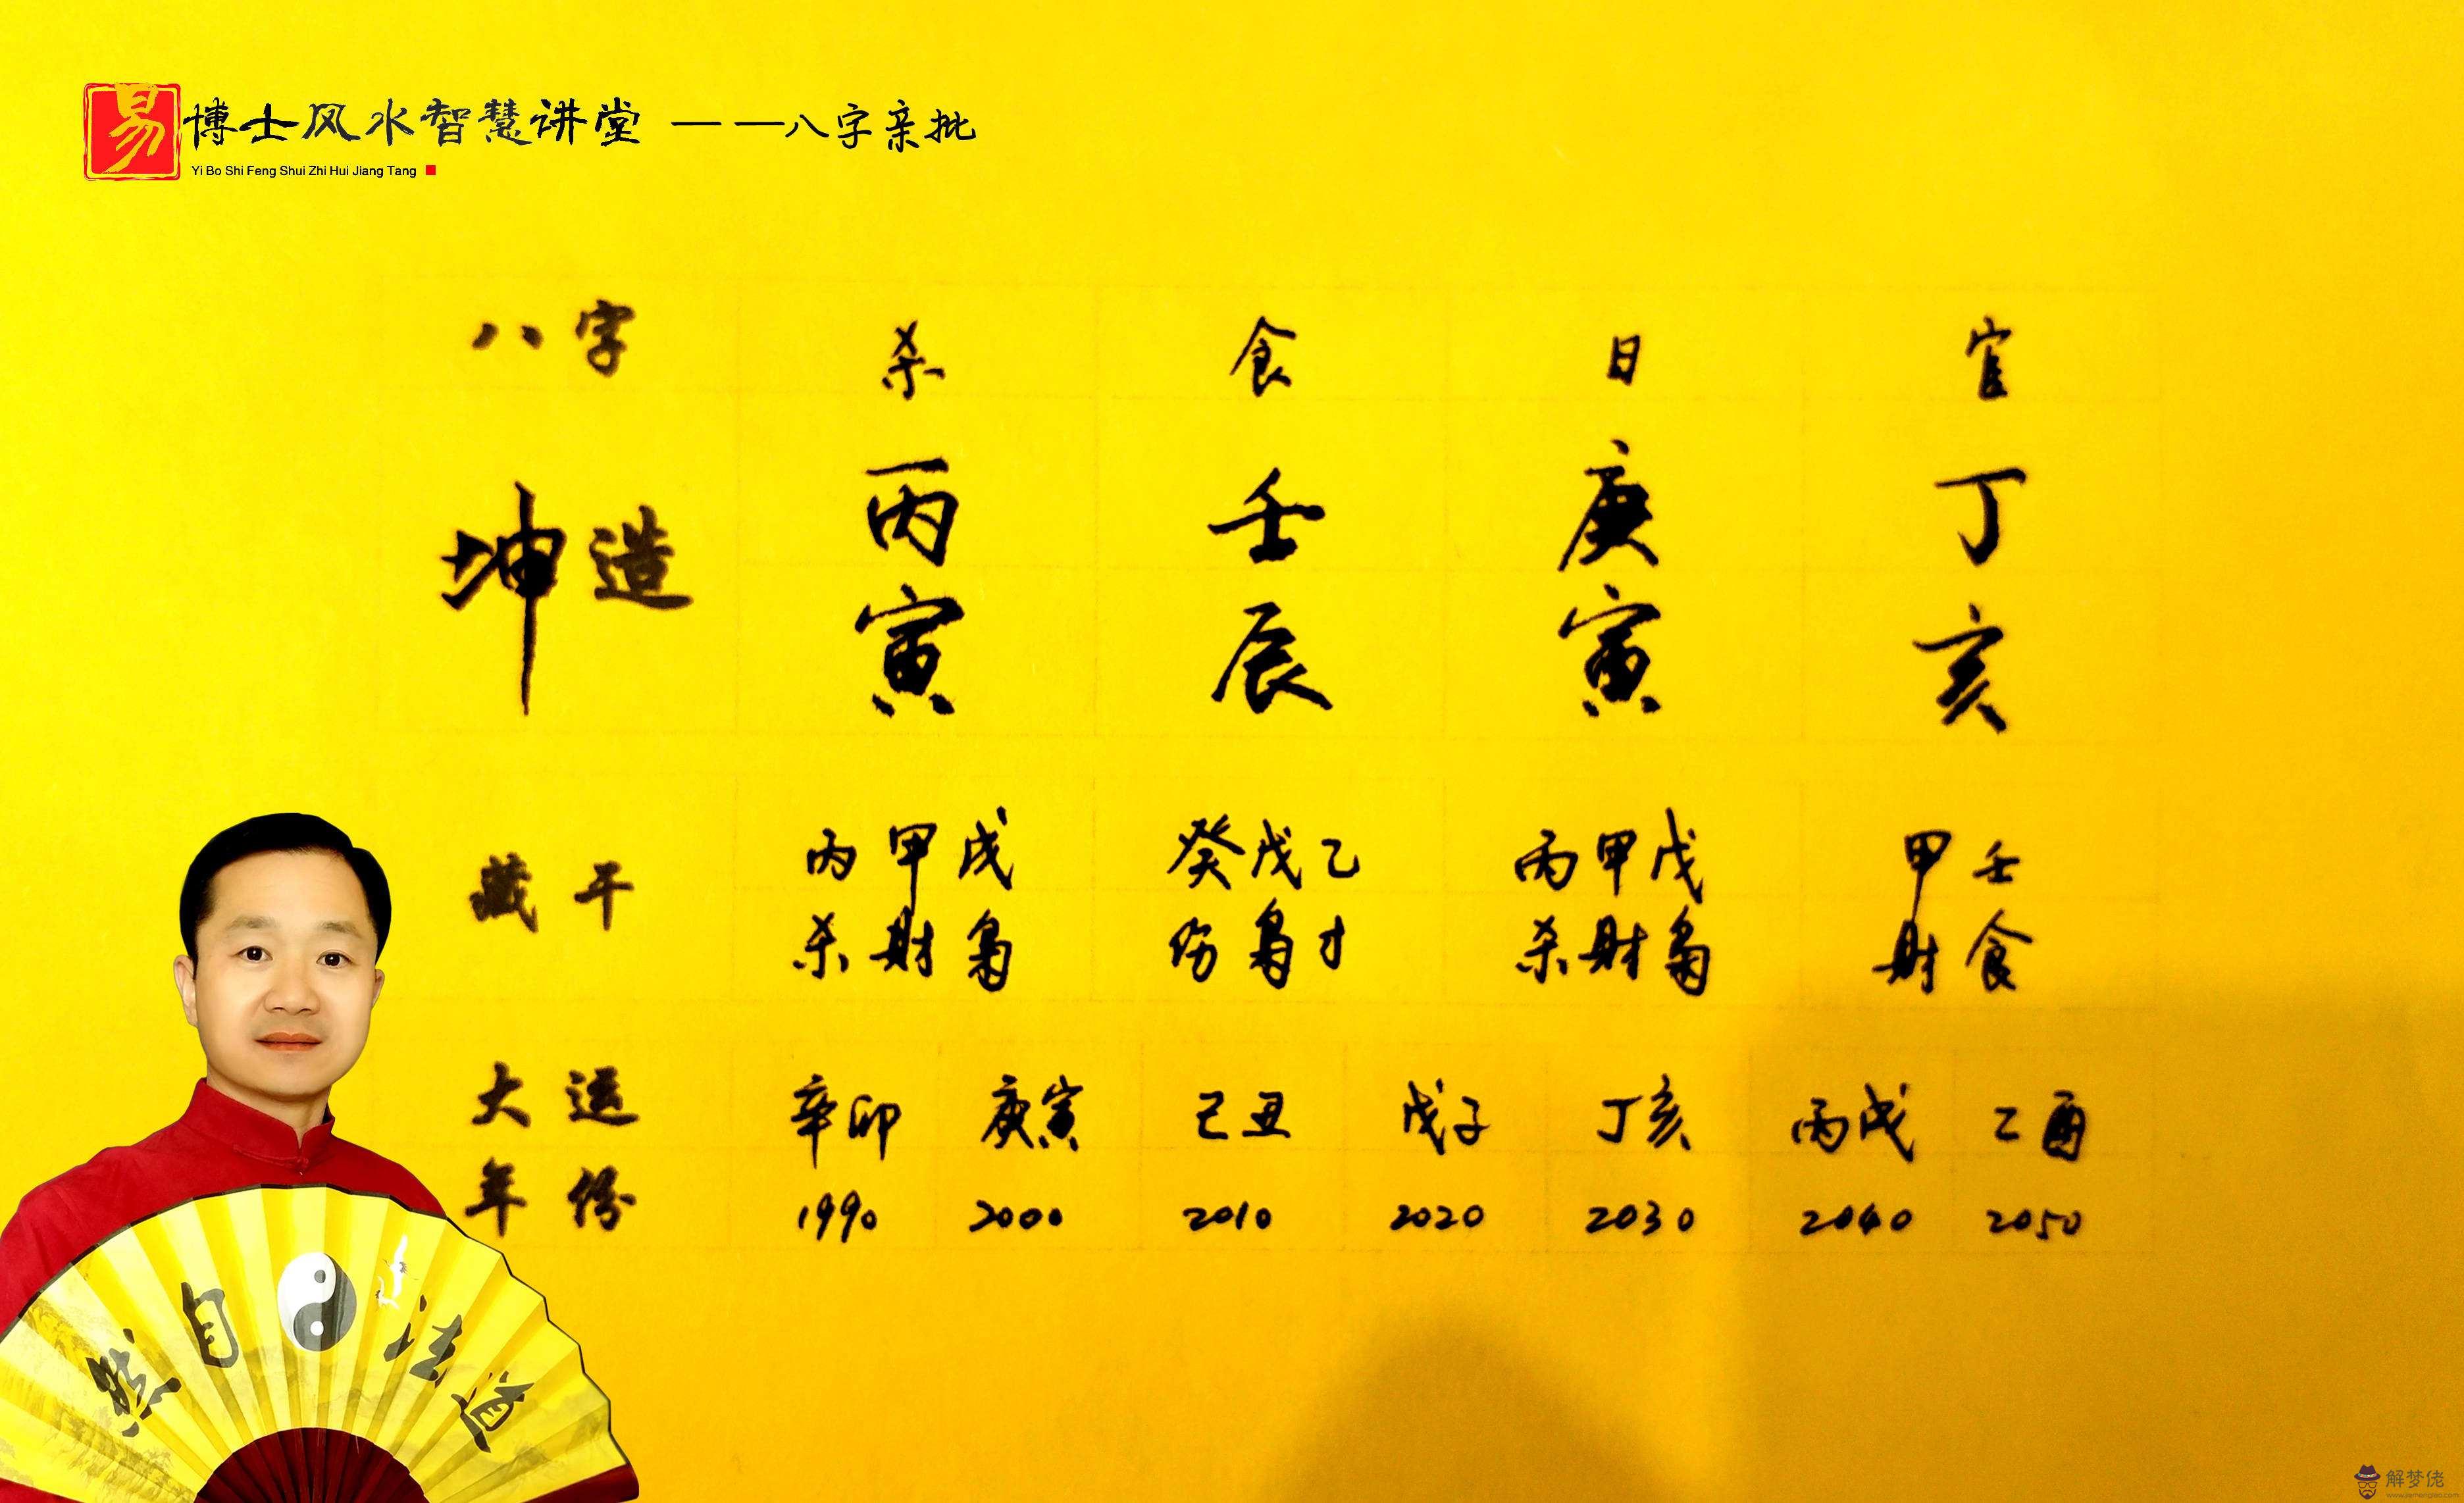 易博士风水智慧讲堂 ——八字亲批
Yi Bo Shi Feng Shui Zhi Hui Jiang Tang
八字 杀 食 日 官
坤造 丙 壬 庚 丁
寅 辰 寅 亥
藏干 丙甲戊 癸戊乙 丙甲戊 甲壬
杀财枭 伤枭才 杀财枭 财食
大运 辛卯 庚寅 己丑 戊子 丁亥 丙戌 乙酉
年份 1990 2000 2010 2020 2030 2040 2050
然自法道
解梦佬